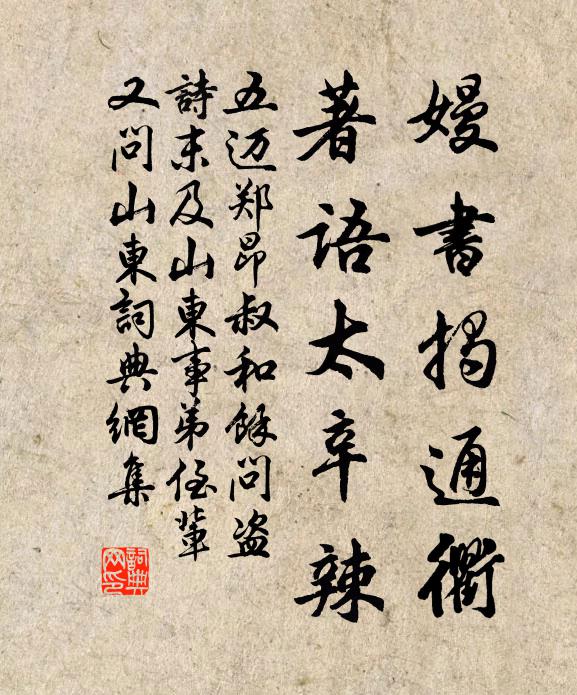 嫚書揭通衢
著語太辛辣
五迈郑昂叔和餘问盗
詩末及山東事弟侄輩
又问山東詞典網集
詞典网印